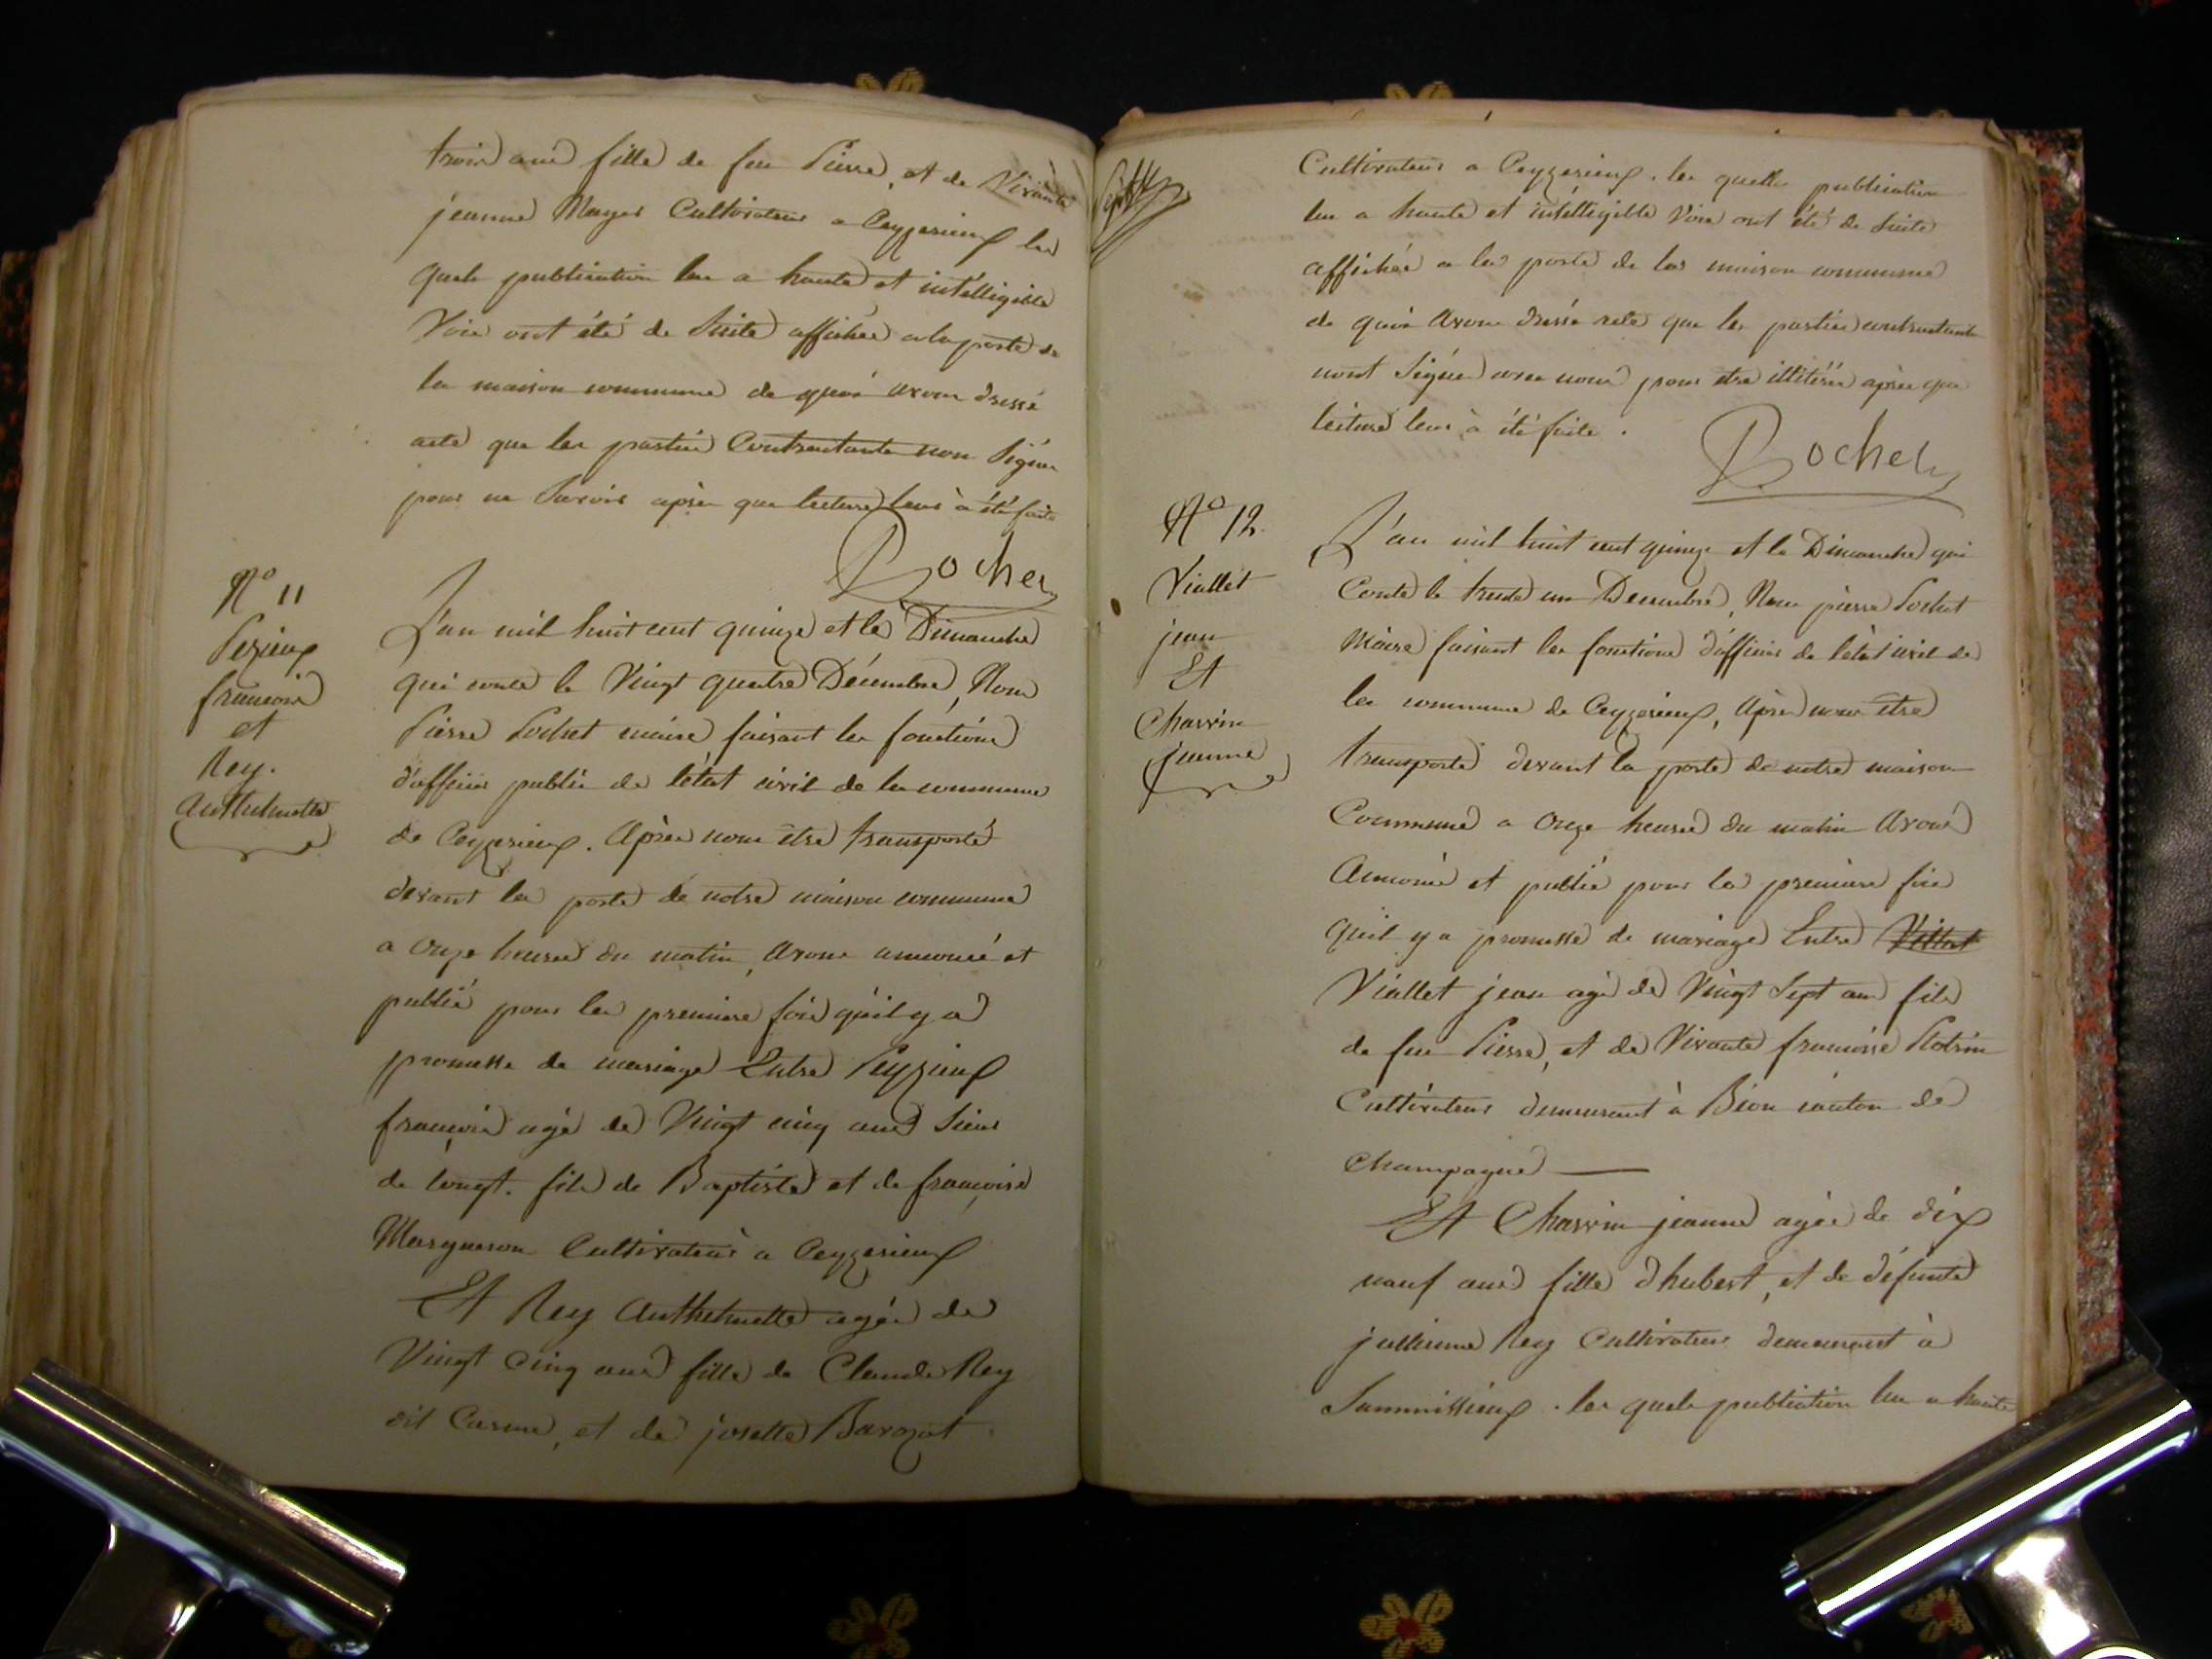 trois ans fille de feu Pierre, et de Vivante
jeanne Mayer Cultivateur a Ceyzerieux les
quele publication lue a haute et intélligible
Voix ont été de Suite affichée a la porte de
la maison commune de quoi avons dréssé
acte que les partiés Contractante non Signer
pour ne Savoir après que lecture leur à été faite
Rochet
N° 11
Pezieux
francois
et
Rey.
Anthelmette
L'an mil huit cent quinze et le Dimanche
qui conte le Vingt quatre Décembre, Nous
Pierre Pochet maire faisant les fonctions
d'officier public de l'état civil de la commune
de Ceyzerieux. Après nous étre transporté
devant la porte de notre maison commune
a onze heures du matin, avons annoncé et
publié pour la premiere fois qu'il y a
promesse de mariage Entre Peyzieux
françois agé de Vingt cinq ans Sieur
de longt. fils de Baptiste et de françoise
Margueron Cultivateur a Ceyzerieux
Et Rey Anthelmette agée de
Vingt Cinq ans fille de Claude Rey
dit Carme, et de josette Barozat
Sept
Cultivateur a Ceyzerieux. les quelle publication
lue a haute et intélligible Voix ont été de Suite
affichée a la porte de la maison commune
de quoi avons dréssé acte que les parties contractante
n'ont Signée avec nous pour etre illitérée après que
lecture leur à été faite.
Rochet
N° 12.
Viallet
jean
Et
Charvin
jeanne
L'an mil huit cent quinze et le Dimanche qui
Conte le trente un Décembre, Nous pierre Pochet
Maire faisant les fonctions d'officier de l'état civil de
la commune de Ceyzerieux, Après nous etre
transporté devant la porte de notre maison
Commune a onze heures du matin avons
Annoncé et publié pour la premiere fois
qu'il y a promesse de mariage Entre Villest
Viallet jean agé de Vingt Sept ans fils
de feu Pierre, et de Vivante francoise
Cultivateur demeurant à Béon canton de
Champagne
Et Charvin jeanne agée de dix
neuf ans fille d'hubert, et de défunte
jullienne Rey Cultivateur demeurant à
les quele publication lue a haute